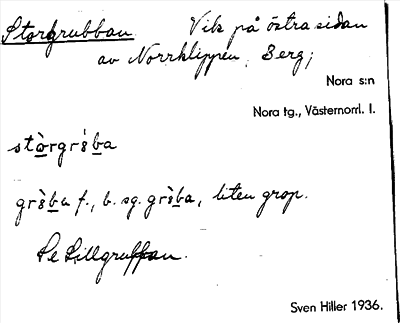 Storgrubban Vik på östra sidan
av Norrklippen, Berg;
Nora s:n
Nora tg., Västernorrl. l.
stòrgrs̀ba
grs̀ba f., b. sg. grs̀ba, liten grop.
Se Lillgrubban.
Sven Hiller 1936.